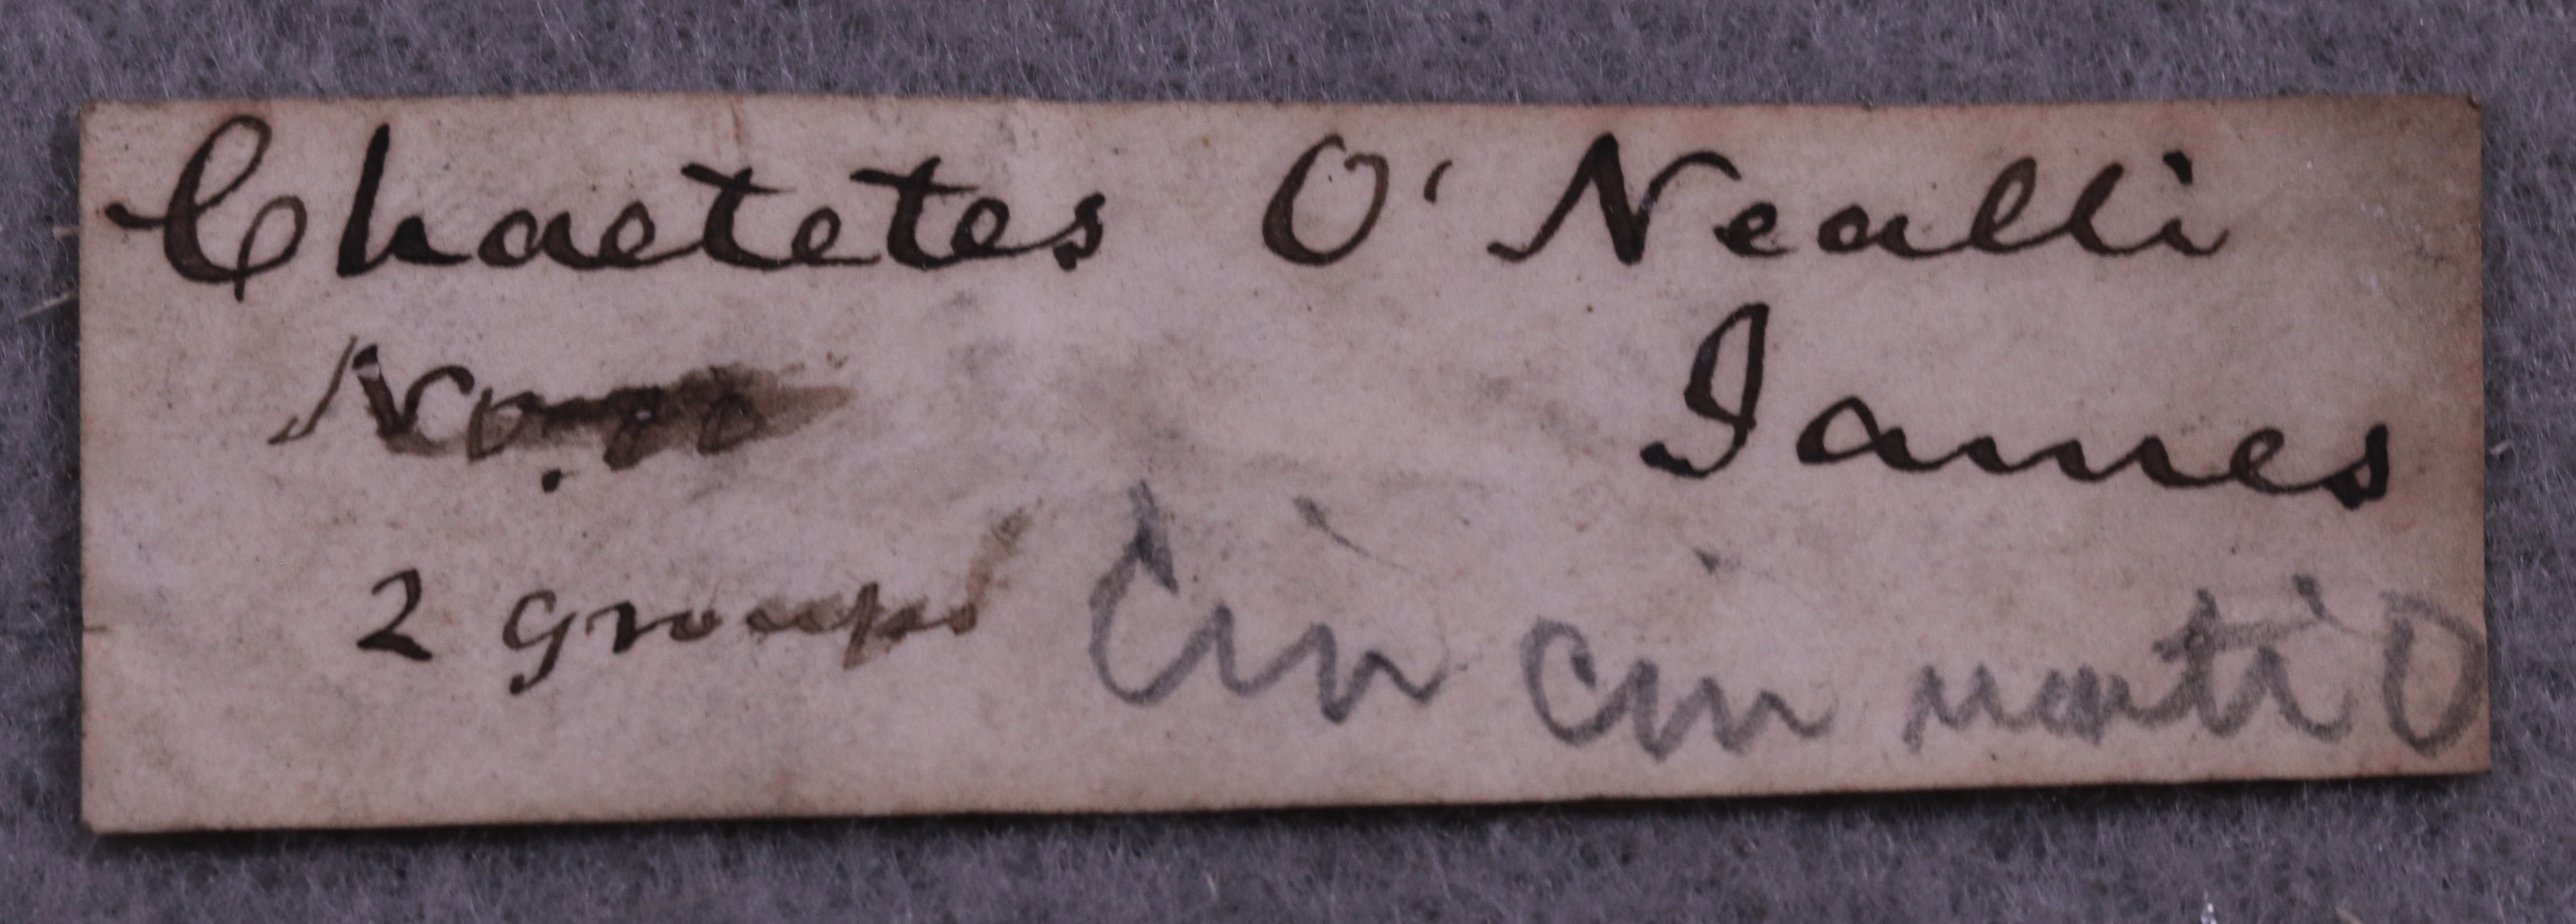 Chaetetes O'Nealli
No.
James
2 groups
Cincinnati O